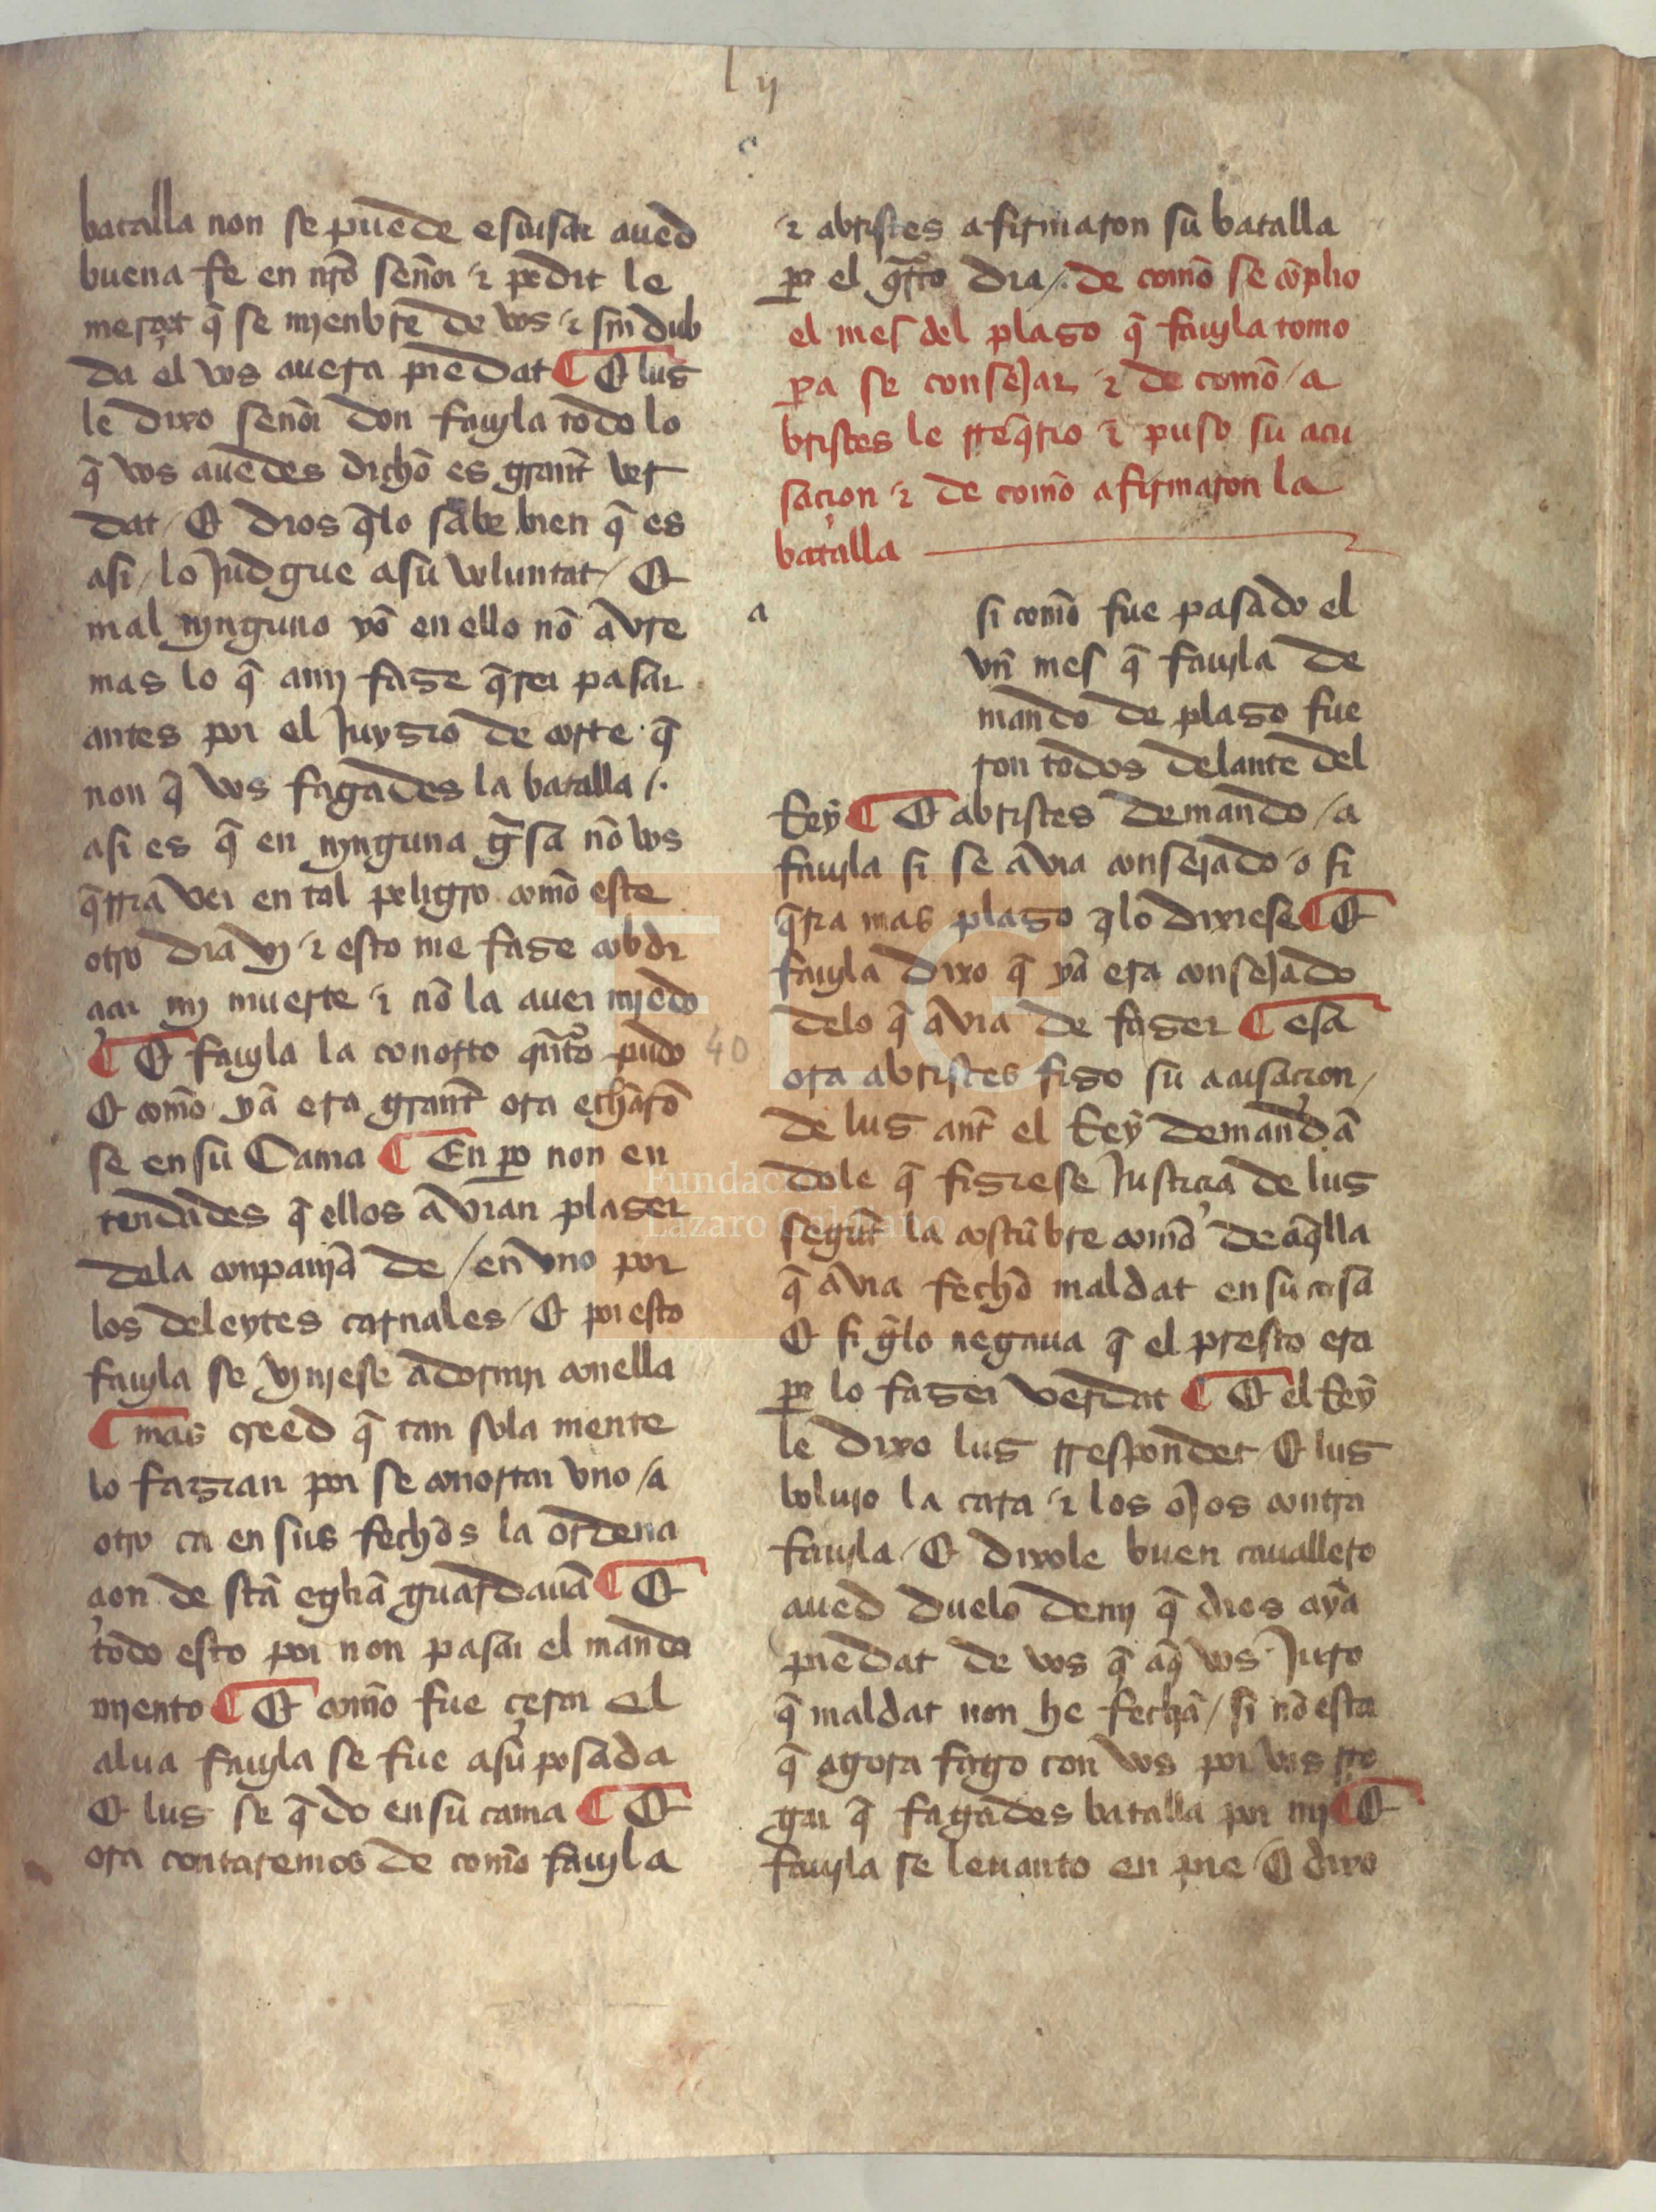 l ij
batalla non se puede escusar aued
buena fe en nr̃o señor ⁊ pedit le
merçet q̃ se mienbre de vos ⁊ sin dub
da el vos auera piedat ¶ E lus
le dixo señor don fauyla todo lo
q̃ vos auedes dicho es grant̃ ver
dat / E dios q̃lo sabe bien q̃ es
asi / lo Judgue asu voluntat / E
mal nynguno yõ en ello nõ avre
mas lo q̃ amj fase q̃rer pasar
antes por el Juyzio de corte q̃
non q̃ vos fagades la batalla /.
asi es q̃ en nynguna g̃sa nõ vos
q̃rria ver en tal peligro comõ este
otro dia vj ⁊ esto me fase cobdi
çiar mj muerte ⁊ nõ la auer miedo
¶ E fauyla la conorto qũto pudo
E comõ yã era grant̃ ora echarõ
se en su Cama ¶ En p̱o non en
tendades q̃ ellos avian plaser
dela conpanjã de / en vno por
los deleytes carnales / E por esto
fauyla se vjniese adormir conella
¶ mas creed q̃ tan sola mente
lo fazian por se conortar vno / a
otro ca en sus fechos la ordena
çion de stã eglesiã guardauã ¶ E
todo esto por non pasar el manda
miento ¶ E comõ fue çerca el
alua fauyla se fue asu posada
E lus se q̃do en su cama ¶ E
ora contaremos de comõ fauyla
⁊ abristes afirmaron su batalla
par el q̃rto dia /. de comõ se cõplio
el mes del plaso q̃ fauyla tomo
p̱a se consejar ⁊ de comõ / a
bristes le rreq̃rio ⁊ puso su acu
saçion ⁊ de comõ afirmaron la
batalla
a
si comõ fue pasado el
vñ mes q̃ fauyla de
mando de plaso fue
ron todos delante del
Rey ¶ E abristes demando / a
fauyla si se avia consejado o si
q̃ria mas plaso q̃lo dixiese ¶ E
fauyla dixo q̃ yã era consejado
delo q̃ avia de faser ¶ esa
ora abristes fiso su acusaçion /
de lus ant̃ el Rey demandã
dole q̃ fiziese Justiçia de lus
segunt̃ la costũbre comõ de aq̃lla
q̃ avia fecho maldat en su casa
E si g̃lo negaua q̃ el presto era
par lo faser verdat ¶ E el Rey
le dixo lus rresponder E lus
boluio la cara ⁊ los ojos contra
fauyla / E dixole buen cauallero
aued duelo demj q̃ dios ayã
piedat de vos q̃ aq̃ vos Juro
q̃ maldat non he fechã / si nõ esta
q̃ agora fago con vos por vos rro
gar q̃ fagades batalla por mj ¶ E
fauyla se leuanto en pie / E dixo
40
Fundación
Lázaro Galdiano